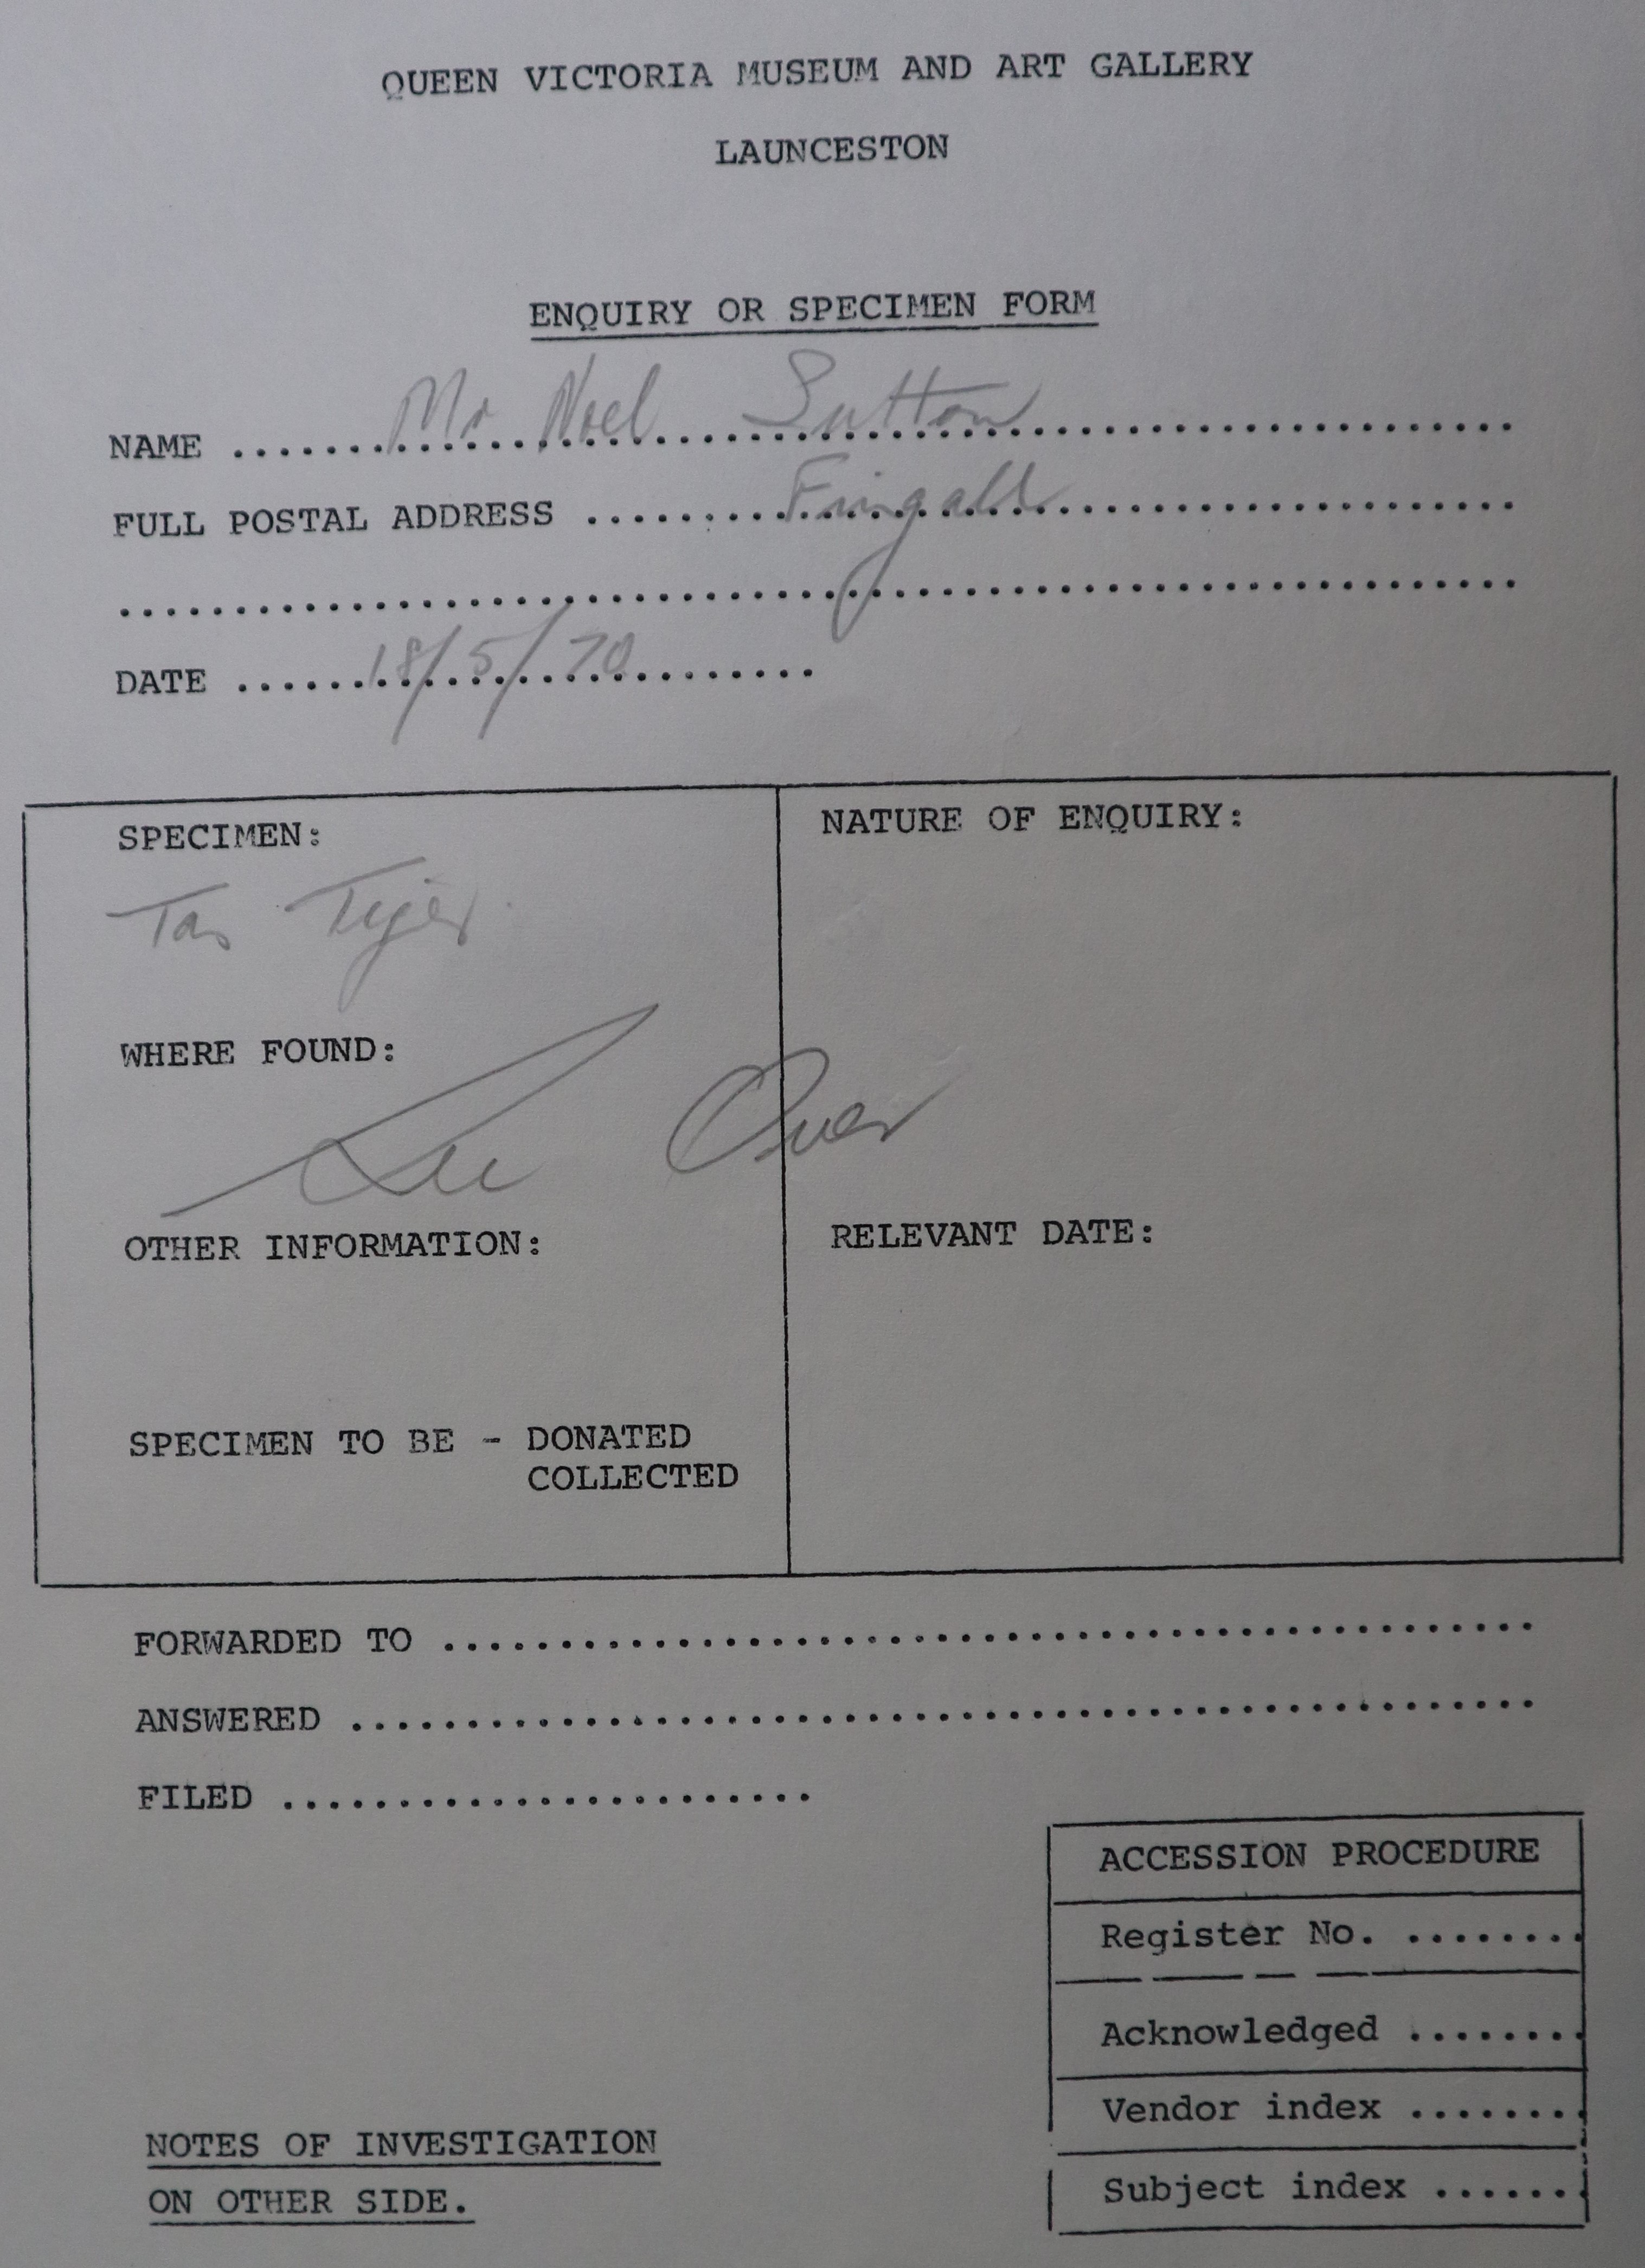 QUEEN VICTORIA MUSEUM AND ART GALLERY
LAUNCESTON
ENQUIRY OR SPECIMEN FORM
NAME ........ Mr Noel Sutton ........
FULL POSTAL ADDRESS ........ Fingall ........
........................................
DATE ...... 18/5/70 ......
SPECIMEN:
Tas Tiger.
WHERE FOUND:
See Over
OTHER INFORMATION:
SPECIMEN TO BE - DONATED
COLLECTED
NATURE OF ENQUIRY:
RELEVANT DATE:
FORWARDED TO ........................................
ANSWERED ........................................
FILED .......................
ACCESSION PROCEDURE
Register No. ........
Acknowledged ........
Vendor index ........
Subject index .......
NOTES OF INVESTIGATION
ON OTHER SIDE.